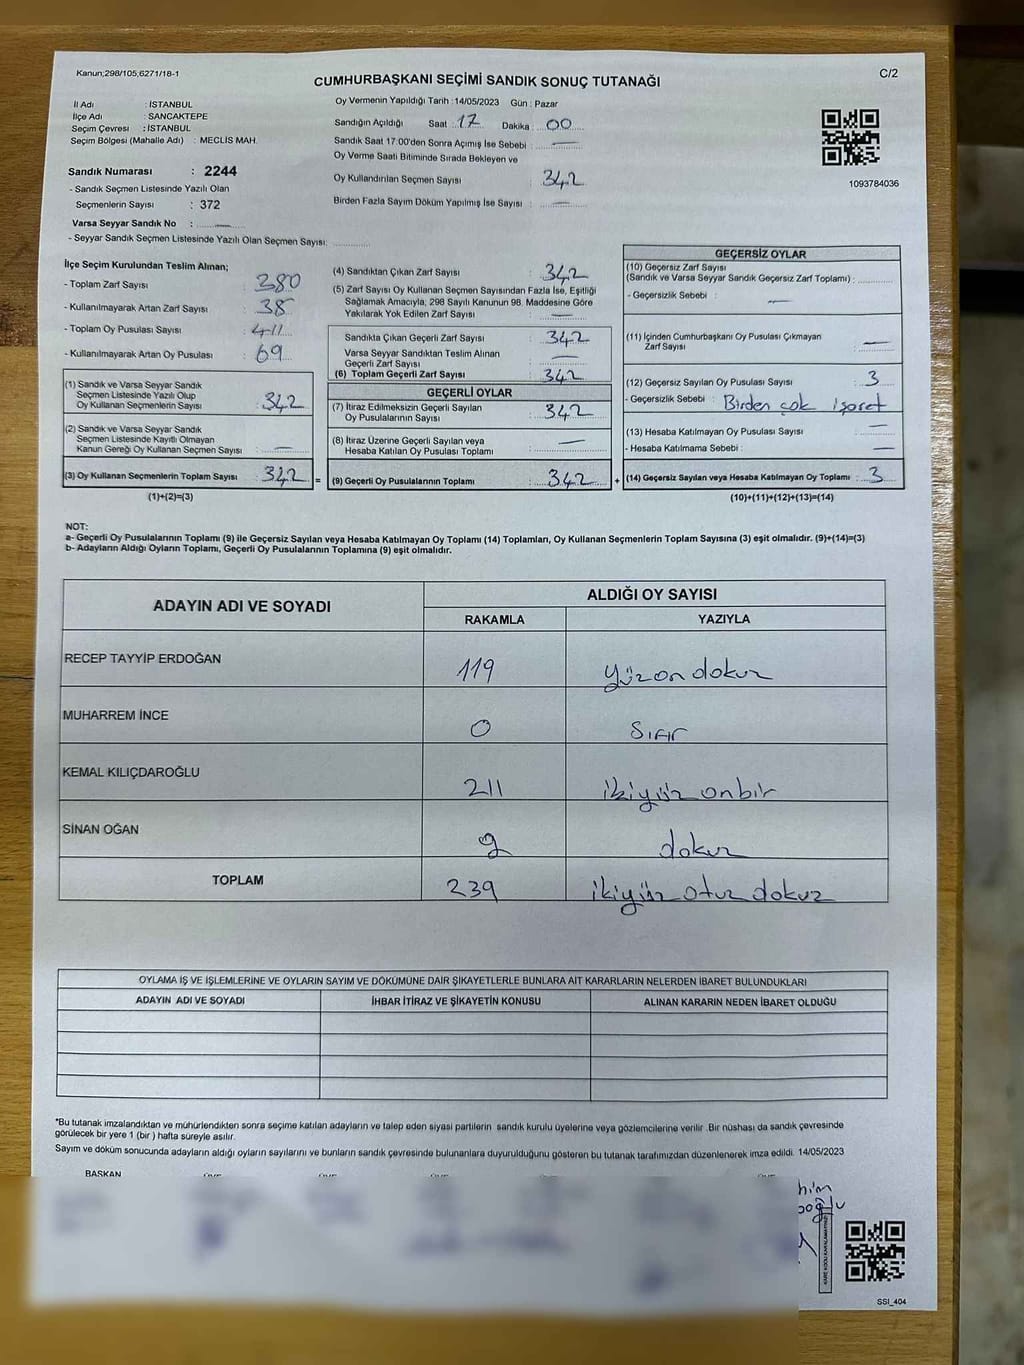 Kanun;298/105,6271/18-1
C/2
CUMHURBAŞKANI SEÇİMİ SANDIK SONUÇ TUTANAĞI
İl Adı : İSTANBUL
İlçe Adı : SANCAKTEPE
Seçim Çevresi : İSTANBUL
Seçim Bölgesi (Mahalle Adı) : MECLİS MAH.
Sandık Numarası : 2244
- Sandık Seçmen Listesinde Yazılı Olan
Seçmenlerin Sayısı : 372
Varsa Seyyar Sandık No : —
- Seyyar Sandık Seçmen Listesinde Yazılı Olan Seçmen Sayısı:
Oy Vermenin Yapıldığı Tarih : 14/05/2023 Gün : Pazar
Sandığın Açıldığı Saat 17 Dakika : 00
Sandık Saat 17:00'den Sonra Açımış İse Sebebi : —
Oy Verme Saati Bitiminde Sırada Bekleyen ve
Oy Kullandırılan Seçmen Sayısı : 342
Birden Fazla Sayım Döküm Yapılmış İse Sayısı : —
1093784036
İlçe Seçim Kurulundan Teslim Alınan;
- Toplam Zarf Sayısı : 380
- Kullanılmayarak Artan Zarf Sayısı : 38
- Toplam Oy Pusulası Sayısı : 411
- Kullanılmayarak Artan Oy Pusulası : 69
(1) Sandık ve Varsa Seyyar Sandık
Seçmen Listesinde Yazılı Olup
Oy Kullanan Seçmenlerin Sayısı : 342
(2) Sandık ve Varsa Seyyar Sandık
Seçmen Listesinde Kayıtlı Olmayan
Kanun Gereği Oy Kullanan Seçmen Sayısı : —
(3) Oy Kullanan Seçmenlerin Toplam Sayısı : 342 =
(1)+(2)=(3)
(4) Sandıktan Çıkan Zarf Sayısı : 342
(5) Zarf Sayısı Oy Kullanan Seçmen Sayısından Fazla İse, Eşitliği
Sağlamak Amacıyla; 298 Sayılı Kanunun 98. Maddesine Göre
Yakılarak Yok Edilen Zarf Sayısı : —
Sandıkta Çıkan Geçerli Zarf Sayısı : 342
Varsa Seyyar Sandıktan Teslim Alınan
Geçerli Zarf Sayısı : —
(6) Toplam Geçerli Zarf Sayısı : 342
GEÇERLİ OYLAR
(7) İtiraz Edilmeksizin Geçerli Sayılan
Oy Pusulalarının Sayısı : 342
(8) İtiraz Üzerine Geçerli Sayılan veya
Hesaba Katılan Oy Pusulası Toplamı : —
(9) Geçerli Oy Pusulalarının Toplamı : 342 +
GEÇERSİZ OYLAR
(10) Geçersiz Zarf Sayısı
(Sandık ve Varsa Seyyar Sandık Geçersiz Zarf Toplamı) :
- Geçersizlik Sebebi : —
(11) İçinden Cumhurbaşkanı Oy Pusulası Çıkmayan
Zarf Sayısı : —
(12) Geçersiz Sayılan Oy Pusulası Sayısı : 3
- Geçersizlik Sebebi : Birden çok işaret
(13) Hesaba Katılmayan Oy Pusulası Sayısı : —
- Hesaba Katılmama Sebebi : —
(14) Geçersiz Sayılan veya Hesaba Katılmayan Oy Toplamı : 3
(10)+(11)+(12)+(13)=(14)
NOT:
a- Geçerli Oy Pusulalarının Toplamı (9) ile Geçersiz Sayılan veya Hesaba Katılmayan Oy Toplamı (14) Toplamları, Oy Kullanan Seçmenlerin Toplam Sayısına (3) eşit olmalıdır. (9)+(14)=(3)
b- Adayların Aldığı Oyların Toplamı, Geçerli Oy Pusulalarının Toplamına (9) eşit olmalıdır.
ADAYIN ADI VE SOYADI
ALDIĞI OY SAYISI
RAKAMLA YAZIYLA
RECEP TAYYİP ERDOĞAN 119 yüzondokuz
MUHARREM İNCE 0 Sıfır
KEMAL KILIÇDAROĞLU 211 ikiyüz onbir
SİNAN OĞAN 9 dokuz
TOPLAM 239 ikiyüz otuz dokuz
OYLAMA İŞ VE İŞLEMLERİNE VE OYLARIN SAYIM VE DÖKÜMÜNE DAİR ŞİKAYETLERLE BUNLARA AİT KARARLARIN NELERDEN İBARET BULUNDUKLARI
ADAYIN ADI VE SOYADI İHBAR İTİRAZ VE ŞİKAYETİN KONUSU ALINAN KARARIN NEDEN İBARET OLDUĞU
*Bu tutanak imzalandıktan ve mühürlendikten sonra seçime katılan adayların ve talep eden siyasi partilerin sandık kurulu üyelerine veya gözlemcilerine verilir .Bir nüshası da sandık çevresinde
görülecek bir yere 1 (bir ) hafta süreyle asılır.
Sayım ve döküm sonucunda adayların aldığı oyların sayılarını ve bunların sandık çevresinde bulunanlara duyurulduğunu gösteren bu tutanak tarafımızdan düzenlenerek imza edildi. 14/05/2023
BAŞKAN
SSİ_404